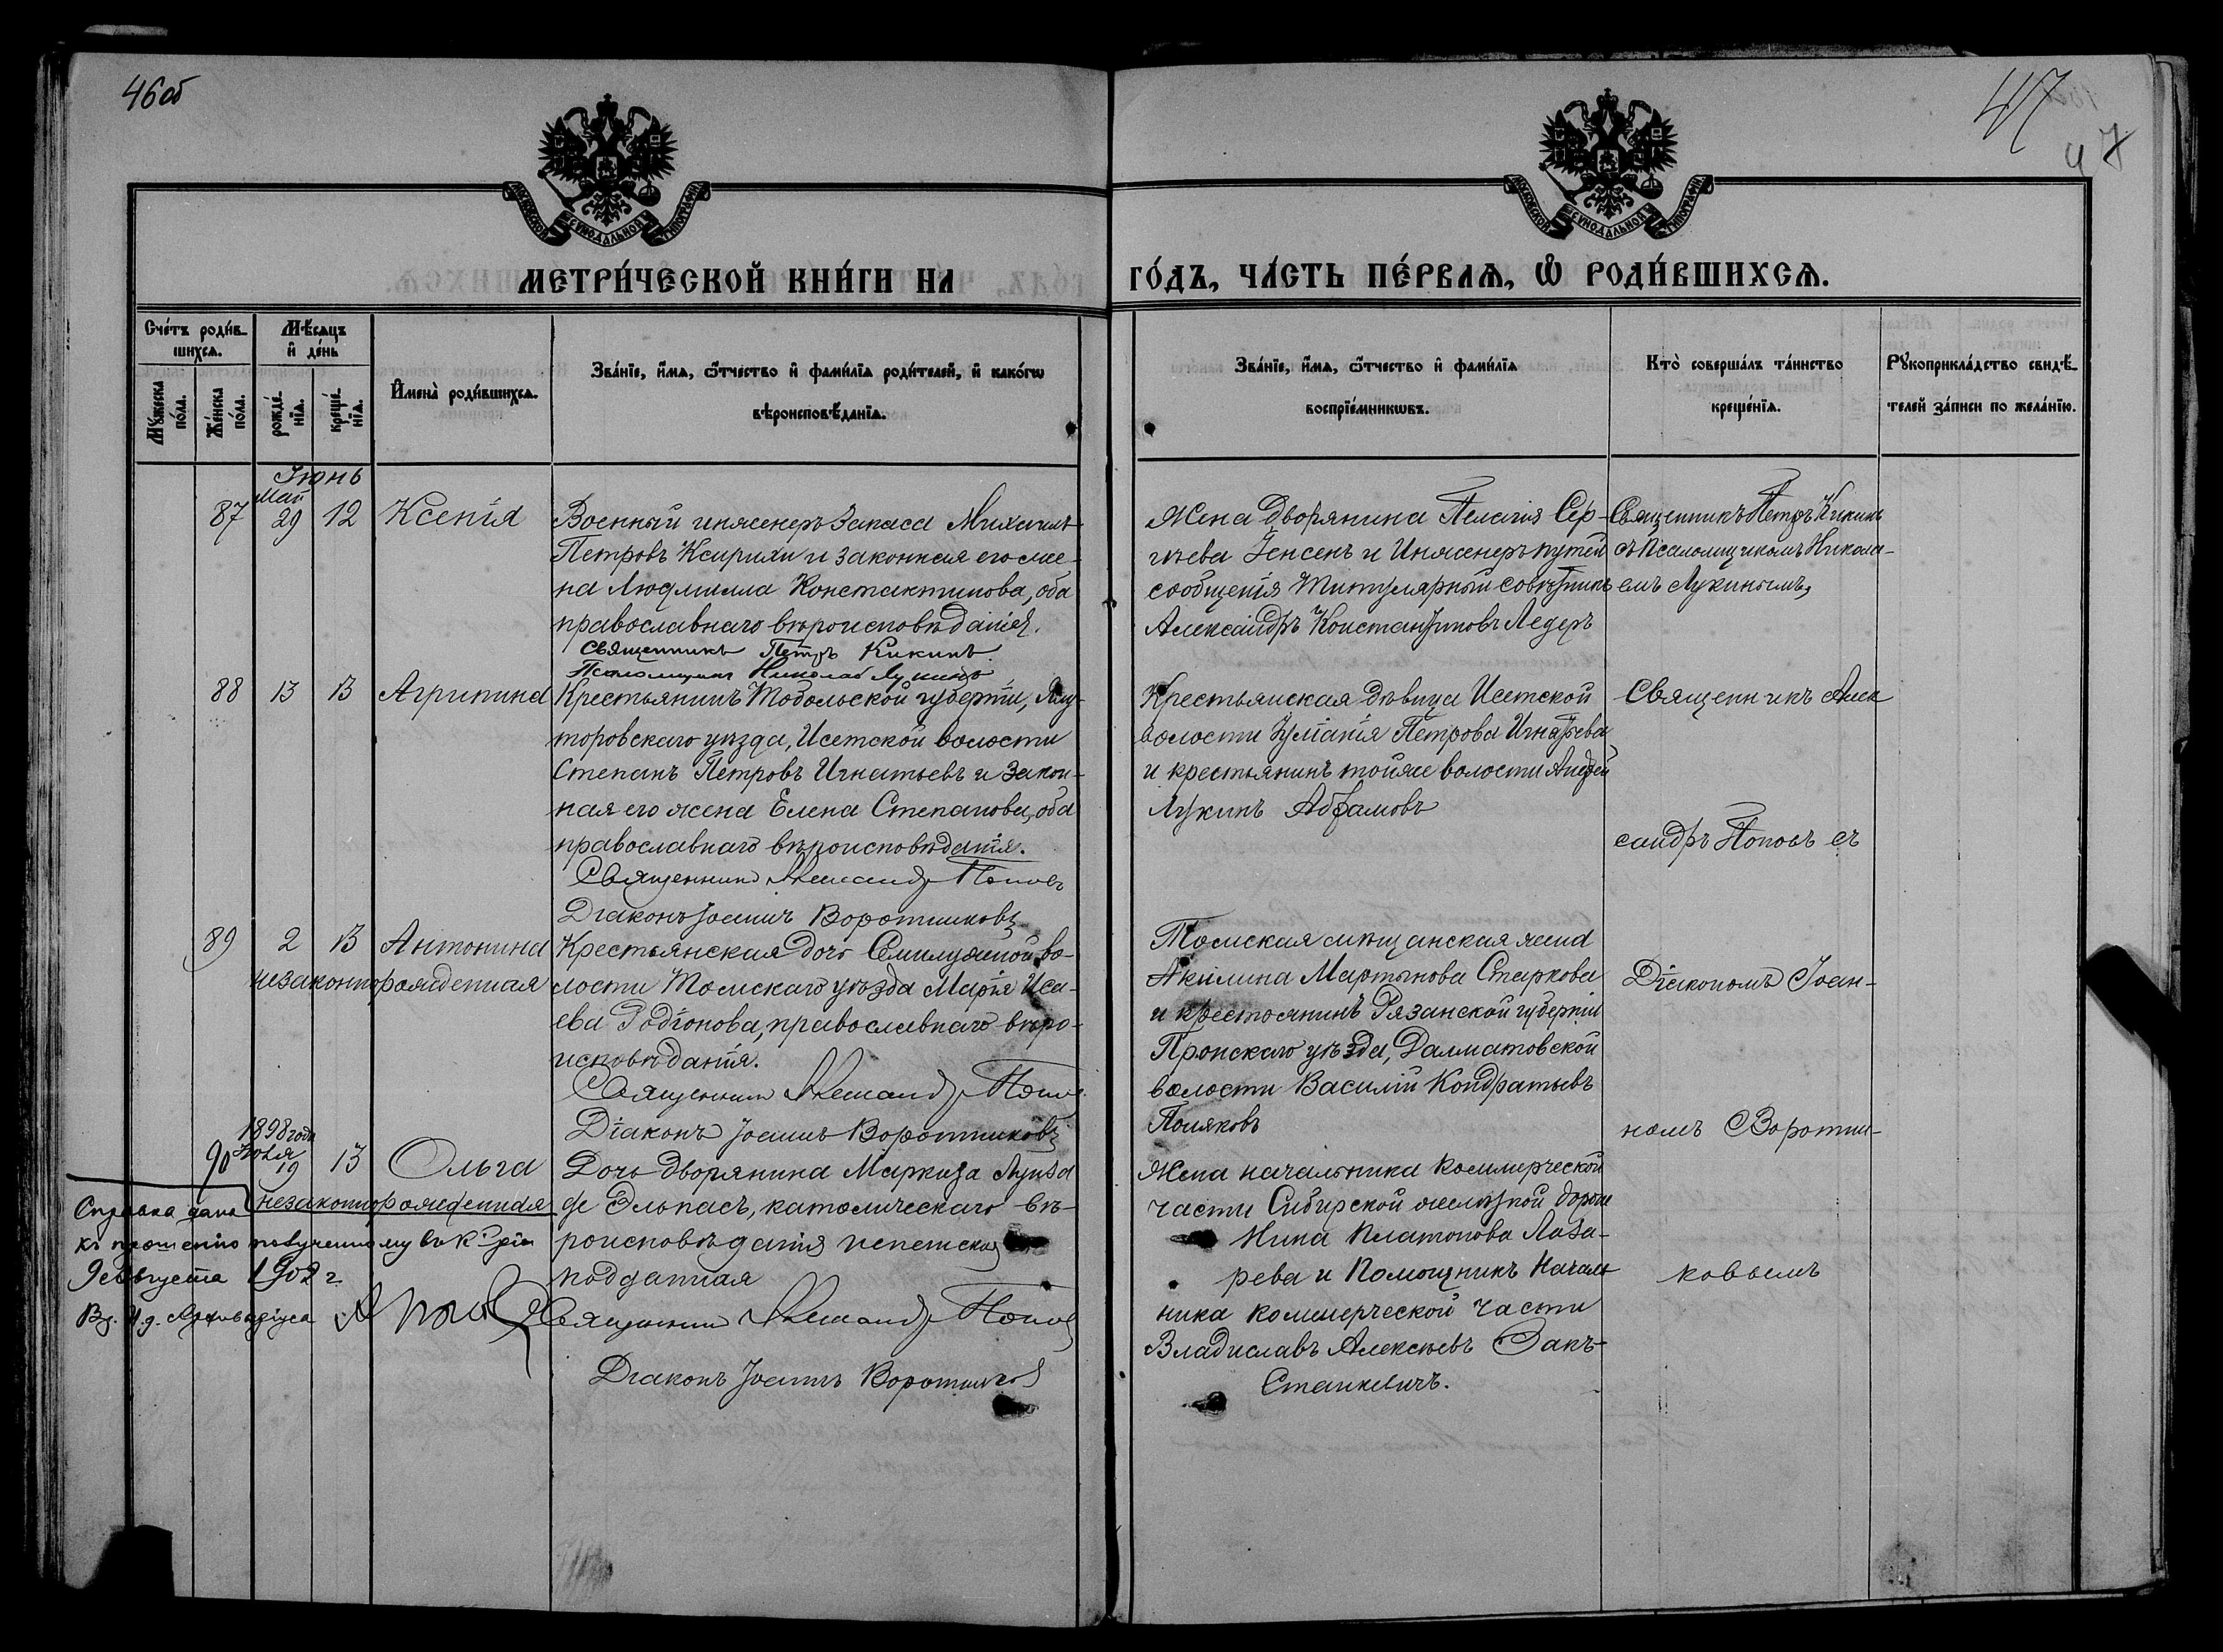 46об
47
47
МОСКОВСКОЙ СѴНОДАЛЬНОЙ ТИПОГРАФІИ
МОСКОВСКОЙ СѴНОДАЛЬНОЙ ТИПОГРАФІИ
МЕТРИ́ЧЕСКОЙ КНИ́ГИ НА
ГО́ДЪ, ЧА́СТЬ ПЕ́РВАѦ, Ѽ РОДИ́ВШИХСѦ.
Сче́тъ роди́в-
шихсѧ.
Мꙋ́жеска по́ла.
Же́нска по́ла.
Мѣ́сѧцъ
и҆ де́нь
рожде́-
нїѧ.
креще́-
нїѧ.
И҆мена̀ роди́вшихсѧ.
Зва́нїе, и҆́мѧ, ѻ҆́тчество и҆ фами́лїѧ роди́телей, и҆ како́гѡ
вѣроисповѣ́данїѧ.
Зва́нїе, и҆́мѧ, ѻ҆́тчество и҆ фами́лїѧ
воспрїе́мникѡвъ.
Кто̀ соверша́лъ та́инство
креще́нїѧ.
Рꙋкоприкла́дство свидѣ́-
телей за́писи по жела́нїю.
Іюнь
Май
87 29 12 Ксенія
Военный инженеръ запаса Михаилъ
Петровъ Ксирихи и законная его же-
на Людмилла Константинова, оба
православнаго вѣроисповѣданія.
Священникъ Петръ Кикинъ
Псаломщикъ Николай Лукинъ
Жена дворянина Пелагія Сер-
гѣева Іенсенъ и Инженеръ путей
сообщенія Титулярный совѣтникъ
Александръ Константиновъ Ледеръ
Священникъ Петръ Кикинъ
съ Псаломщикомъ Никола-
емъ Лукинымъ,
88 13 13 Агрипина
Крестьянинъ Тобольской губерніи, Ялу-
торовскаго уѣзда, Исетской волости
Степанъ Петровъ Игнатьевъ и закон-
ная его жена Елена Степанова, оба
православнаго вѣроисповѣданія.
Священникъ Александръ Поповъ
Діаконъ Іоаннъ Воротниковъ
Крестьянская дѣвица Исетской
волости Іуліанія Петрова Игнатьева
и крестьянинъ той же волости Андрей
Лукинъ Абрамовъ
Священникъ Алек
сандръ Поповъ съ
89 2 13 Антонина
незаконнорожденная
Крестьянская дочь Семилужной во-
лости Томскаго уѣзда Марія Иса-
ева Родіонова, православнаго вѣро-
исповѣданія.
Священникъ Александръ Поповъ
Діаконъ Іоаннъ Воротниковъ
Томская мѣщанская жена
Акилина Мартынова Старкова
и крестьянинъ Рязанской губерніи
Пронскаго уѣзда, Далматовской
волости Василій Кондратьевъ
Поляковъ
Діакономъ Іоан-
номъ Воротни-
1898 года
90 19 13 Ольга
незаконнорожденная
Дочь дворянина Маркиза Луиза
де Эльпасъ, католическаго вѣ-
роисповѣданія
подданная
Священникъ Александръ Поповъ
Діаконъ Іоаннъ Воротниковъ
Жена начальника коммерческой
части Сибирской желѣзной дороги
Нина Платонова Лаза-
рева и Помощникъ Началь
ника коммерческой части
Владиславъ Алексѣевъ Закъ-
Станкевичъ.
ковымъ
Справка дана
къ прошенію полученному въ К-ріи
9 августа 1902 г.
В. д. Архиваріуса